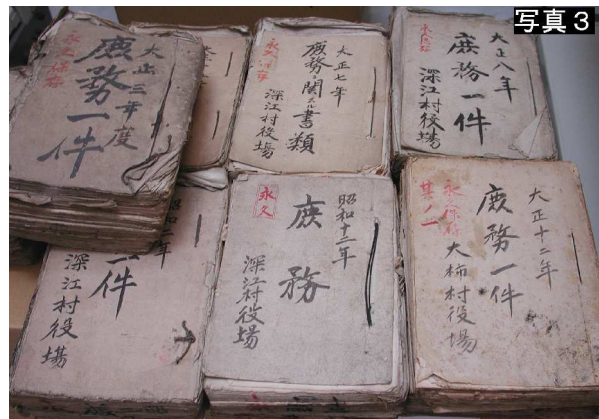 写真３
永久保存
大正三年度
庶務一件
永久保存
大正七年
庶務ニ関スル書類
深江村役場
永久保存
大正八年
庶務一件
深江村役場
二年
一件
深江村役場
永久
昭和十二年
庶務
深江村役場
永久保存
其ノ二
大正十二年
庶務一件
大柿村役場